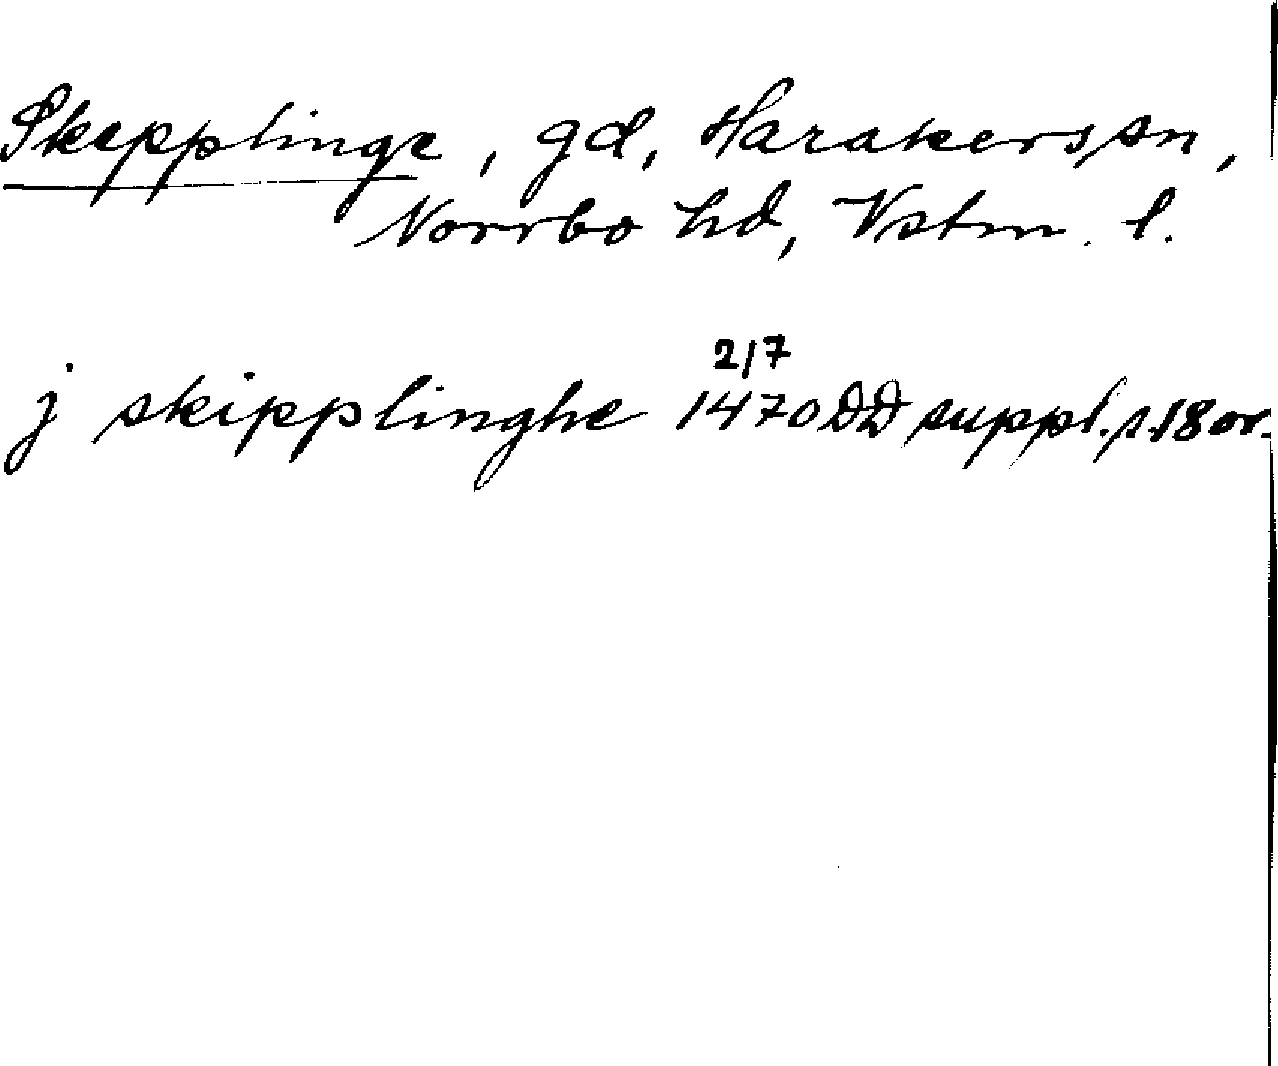 Skepplinge, gd, Harakers sn,
Norrbo hd, Vstm. l.
j skipplinghe 2/7 1470 DD suppl. s. 18 or.